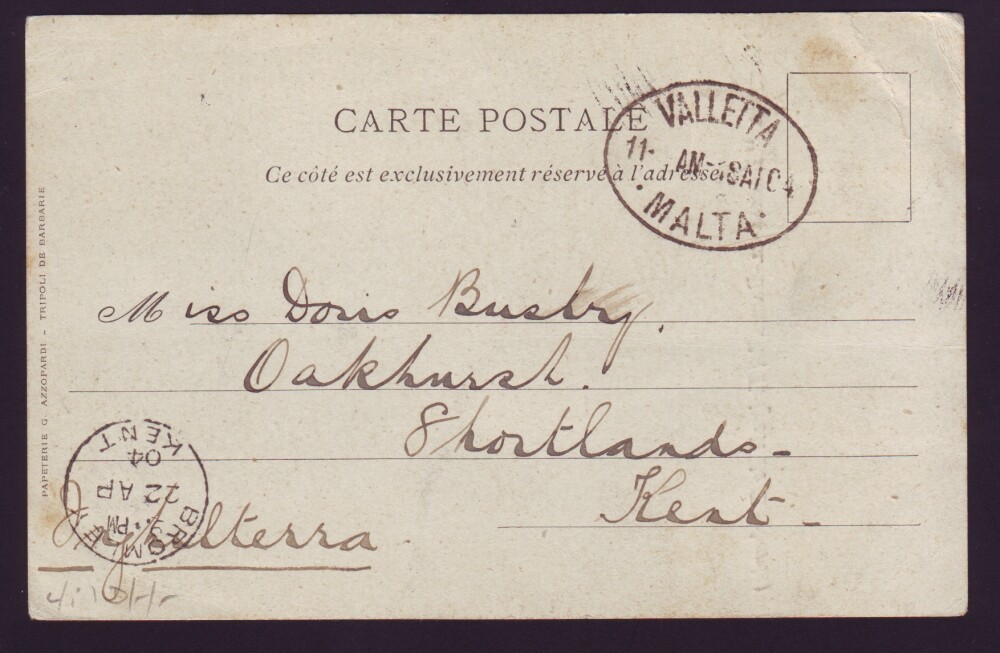 CARTE POSTALE
Ce côté est exclusivement réservé à l'adresse
VALLETTA
11- AM-18AP04
MALTA
Miss Doris Busbry.
Oakhurst.
Shortlands-
Kent-
Inghilterra
BROMLEY
PM
22 AP
04
KENT
PAPETERIE G. AZZOPARDI - TRIPOLI DE BARBARIE